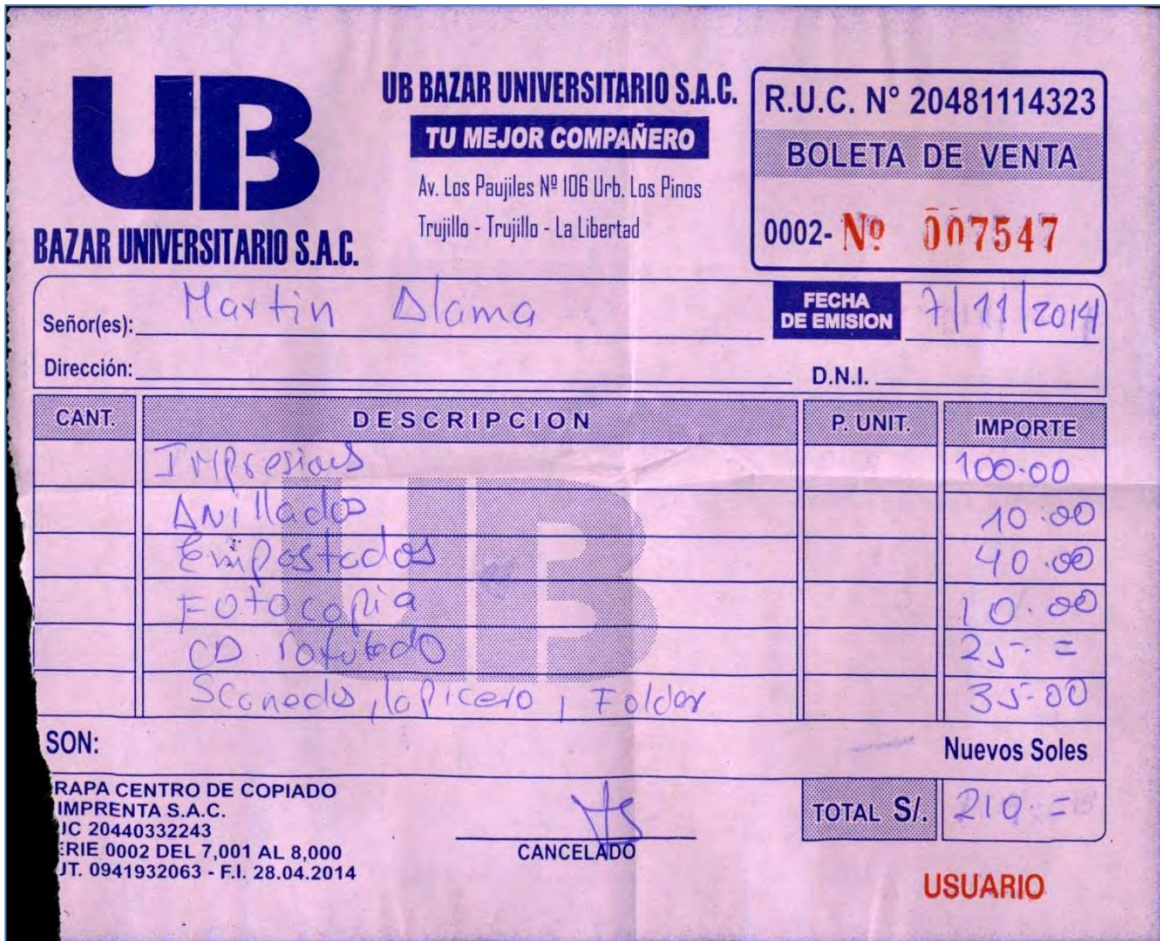 UB
BAZAR UNIVERSITARIO S.A.C.
UB BAZAR UNIVERSITARIO S.A.C.
TU MEJOR COMPAÑERO
Av. Los Paujiles Nº 106 Urb. Los Pinos
Trujillo - Trujillo - La Libertad
R.U.C. N° 20481114323
BOLETA DE VENTA
0002- Nº 007547
Señor(es): Martin Alama
FECHA DE EMISION 7/11/2014
Dirección:
D.N.I.
CANT. DESCRIPCION P. UNIT. IMPORTE
Impresions 100.00
Anillados 10.00
Empastados 40.00
Fotocopia 10.00
CD rotulado 25. =
Scaneds, lapicero, Folder 35.00
UB
SON: Nuevos Soles
RAPA CENTRO DE COPIADO
IMPRENTA S.A.C.
UC 20440332243
ERIE 0002 DEL 7,001 AL 8,000
UT. 0941932063 - F.I. 28.04.2014
CANCELADO
TOTAL S/. 210. =
USUARIO